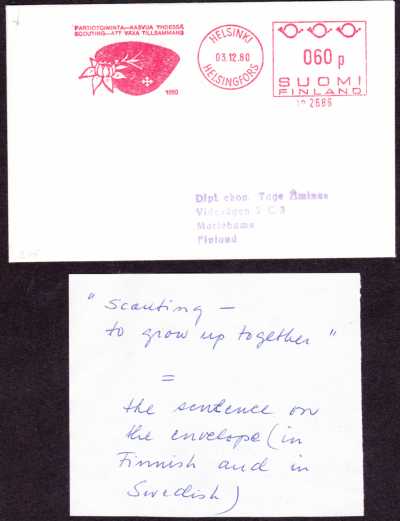 PARTIOTOIMINTA—KASVUA YHDESSÄ
SCOUTING—ATT VÄXA TILLSAMMANS
1980
HELSINKI
03.12.80
HELSINGFORS
060 p
SUOMI
FINLAND
2686
Dipl ekon Tage
Mariehamn
Finland
"scouting —
to grow up together"
=
the sentence on
the envelope (in
Finnish and in
Swedish)